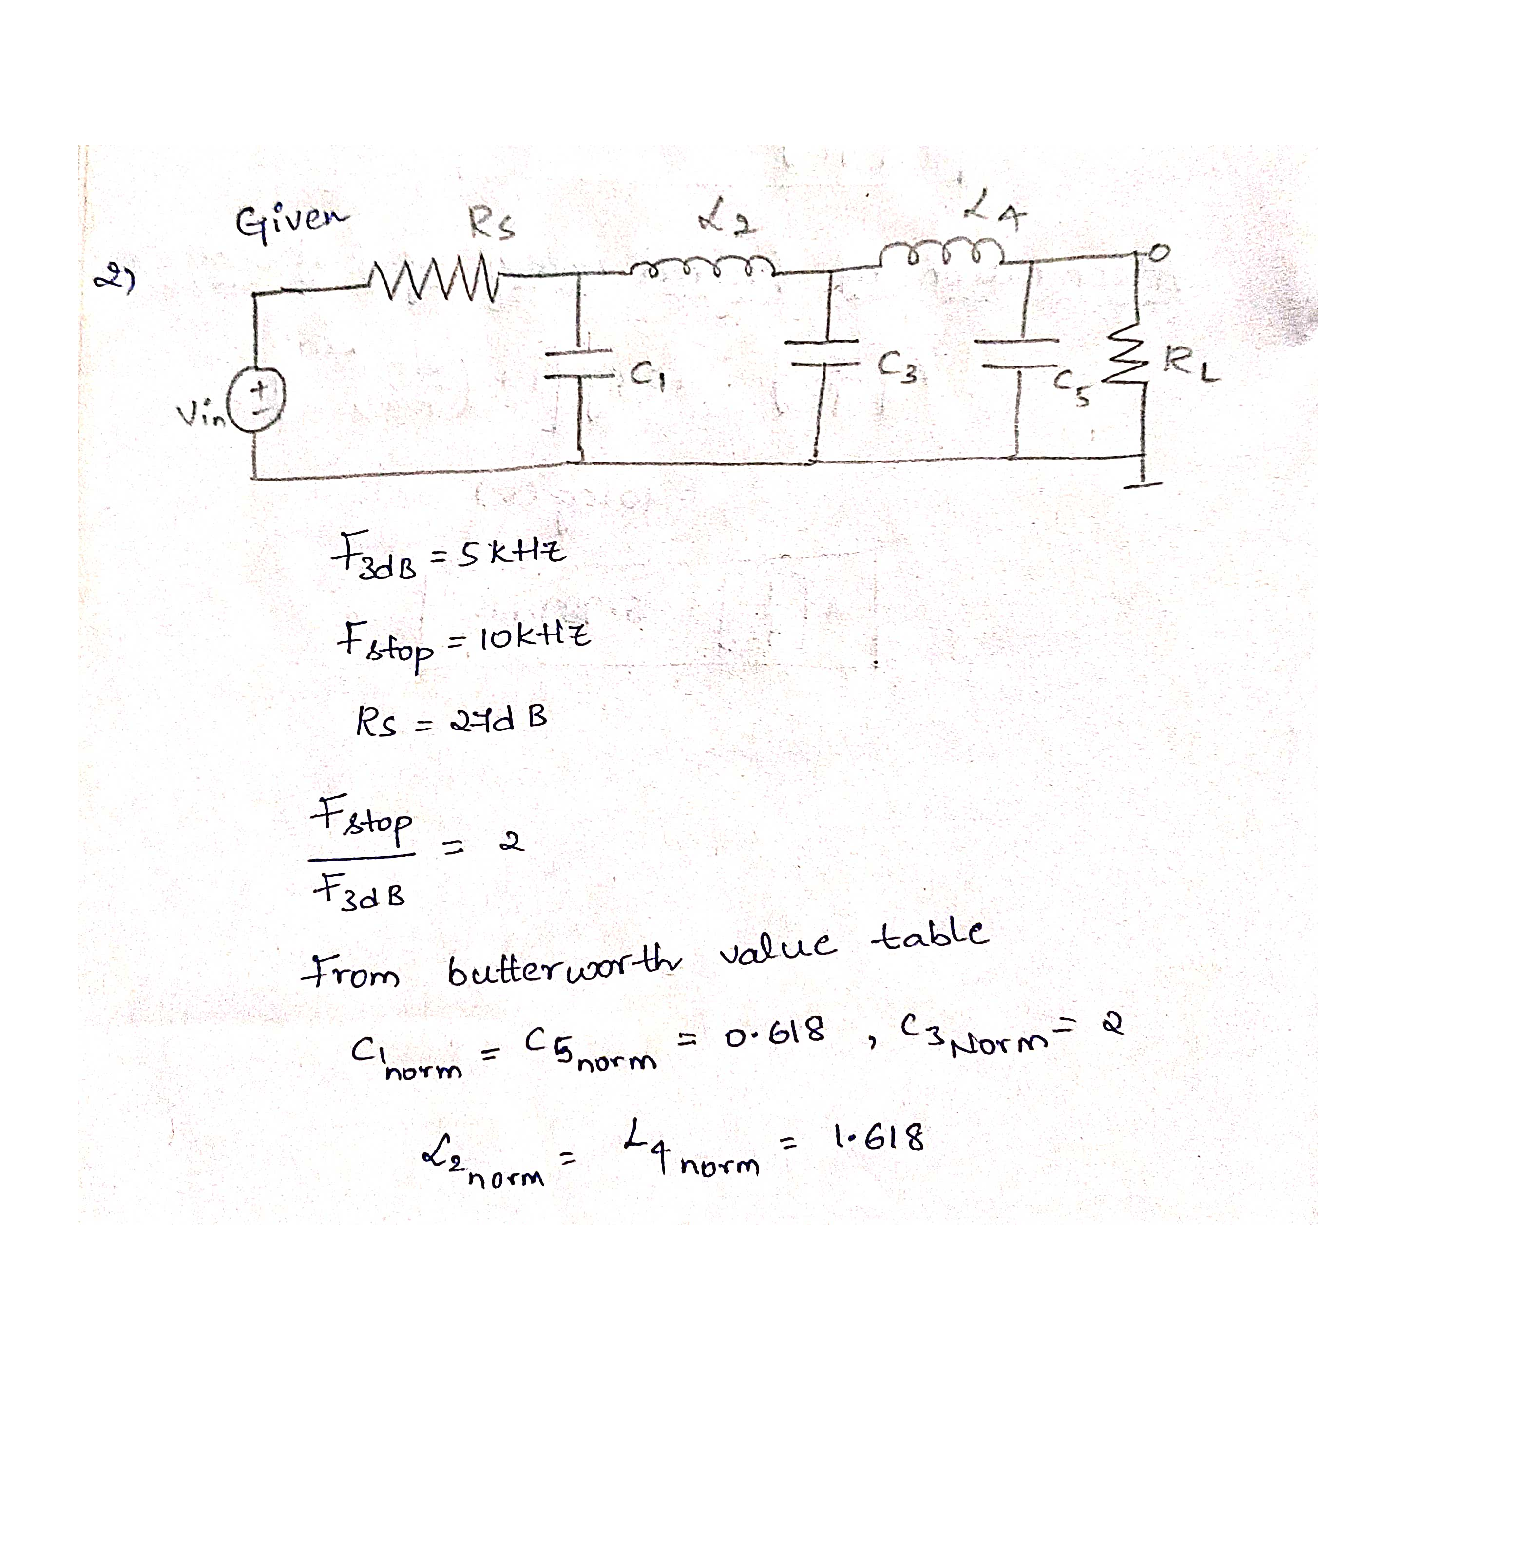 Given
2)
Rs
L2
L4
Vin
+
-
C1
C3
C5
RL
F3dB = 5 kHz
Fstop = 10kHz
Rs = 27d B
Fstop / F3dB = 2
From butterworth value table
C1norm = C5norm = 0.618 , C3Norm = 2
L2norm = L4norm = 1.618